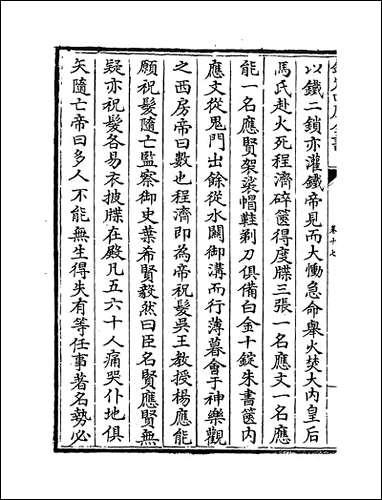 卷十七
以鐵二鎖亦灌鐵帝見而大慟急命舉火焚大內皇后
馬氏赴火死程濟碎篋得度牒三張一名應文一名應
能一名應賢袈裟帽鞋剃刀俱備白金十錠朱書篋內
應文從鬼門出餘從水關御溝而行薄暮會于神樂觀
之西房帝曰數也程濟即為帝祝髮吳王教授楊應能
願祝髮隨亡監察御史葉希賢毅然曰臣名賢應賢無
疑亦祝髮各易衣披牒在殿凡五六十人痛哭仆地俱
矢隨亡帝曰多人不能無生得失有等任事著名勢必